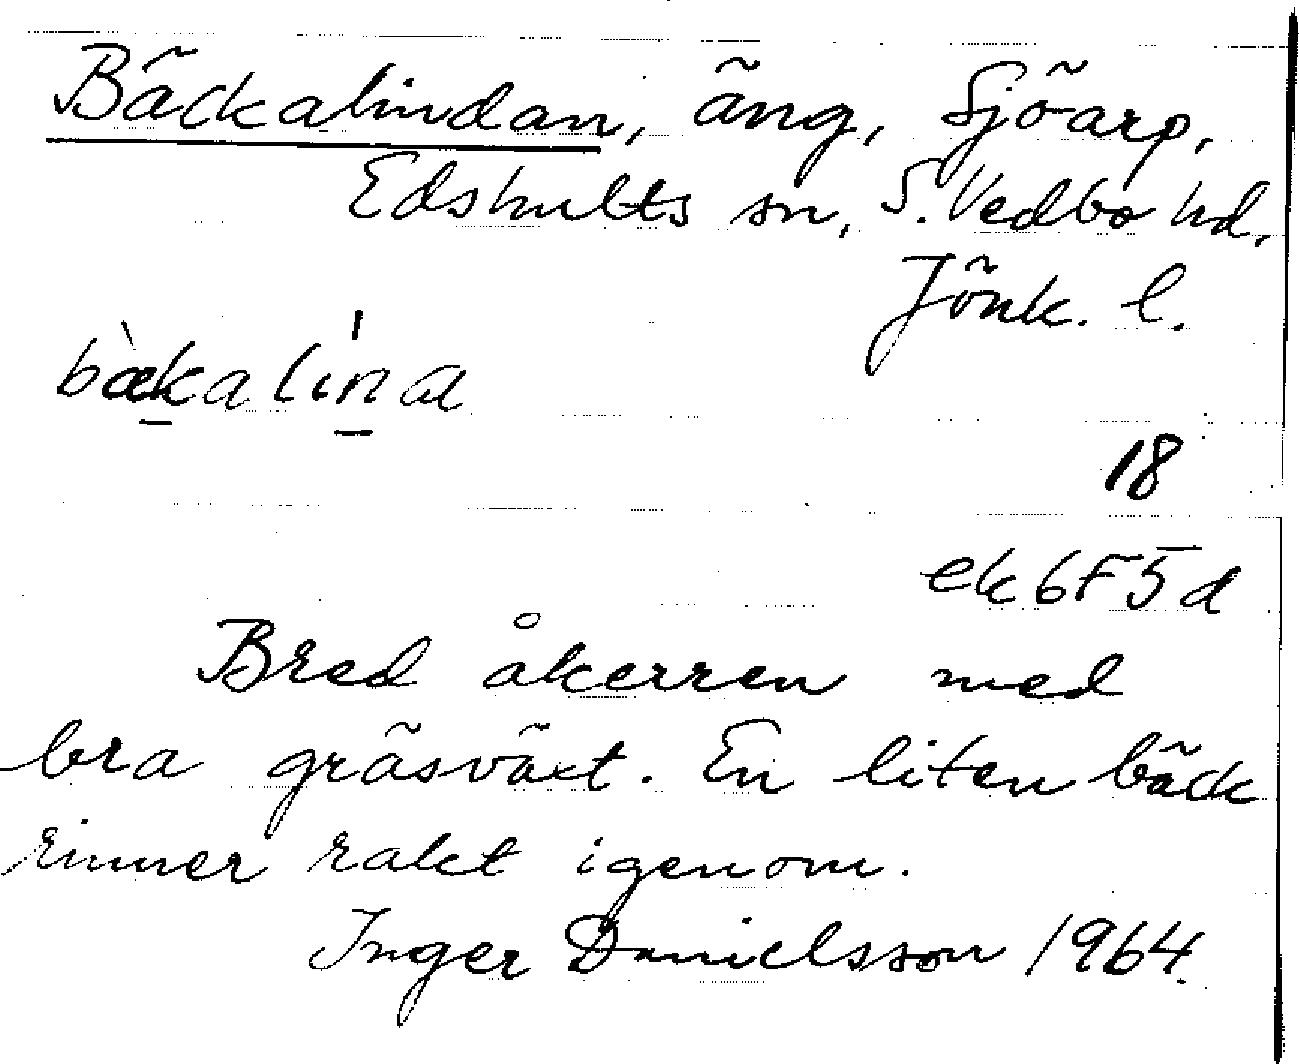 Bäckalindan, äng, Sjöarp,
Edshults sn, S. Vedbo hd,
Jönk. l.
bæ̀ka lìna
18
ek 6F5d
Bred åkerren med
bra gräsväxt. En liten bäck
rinner rakt igenom.
Inger Danielsson 1964.